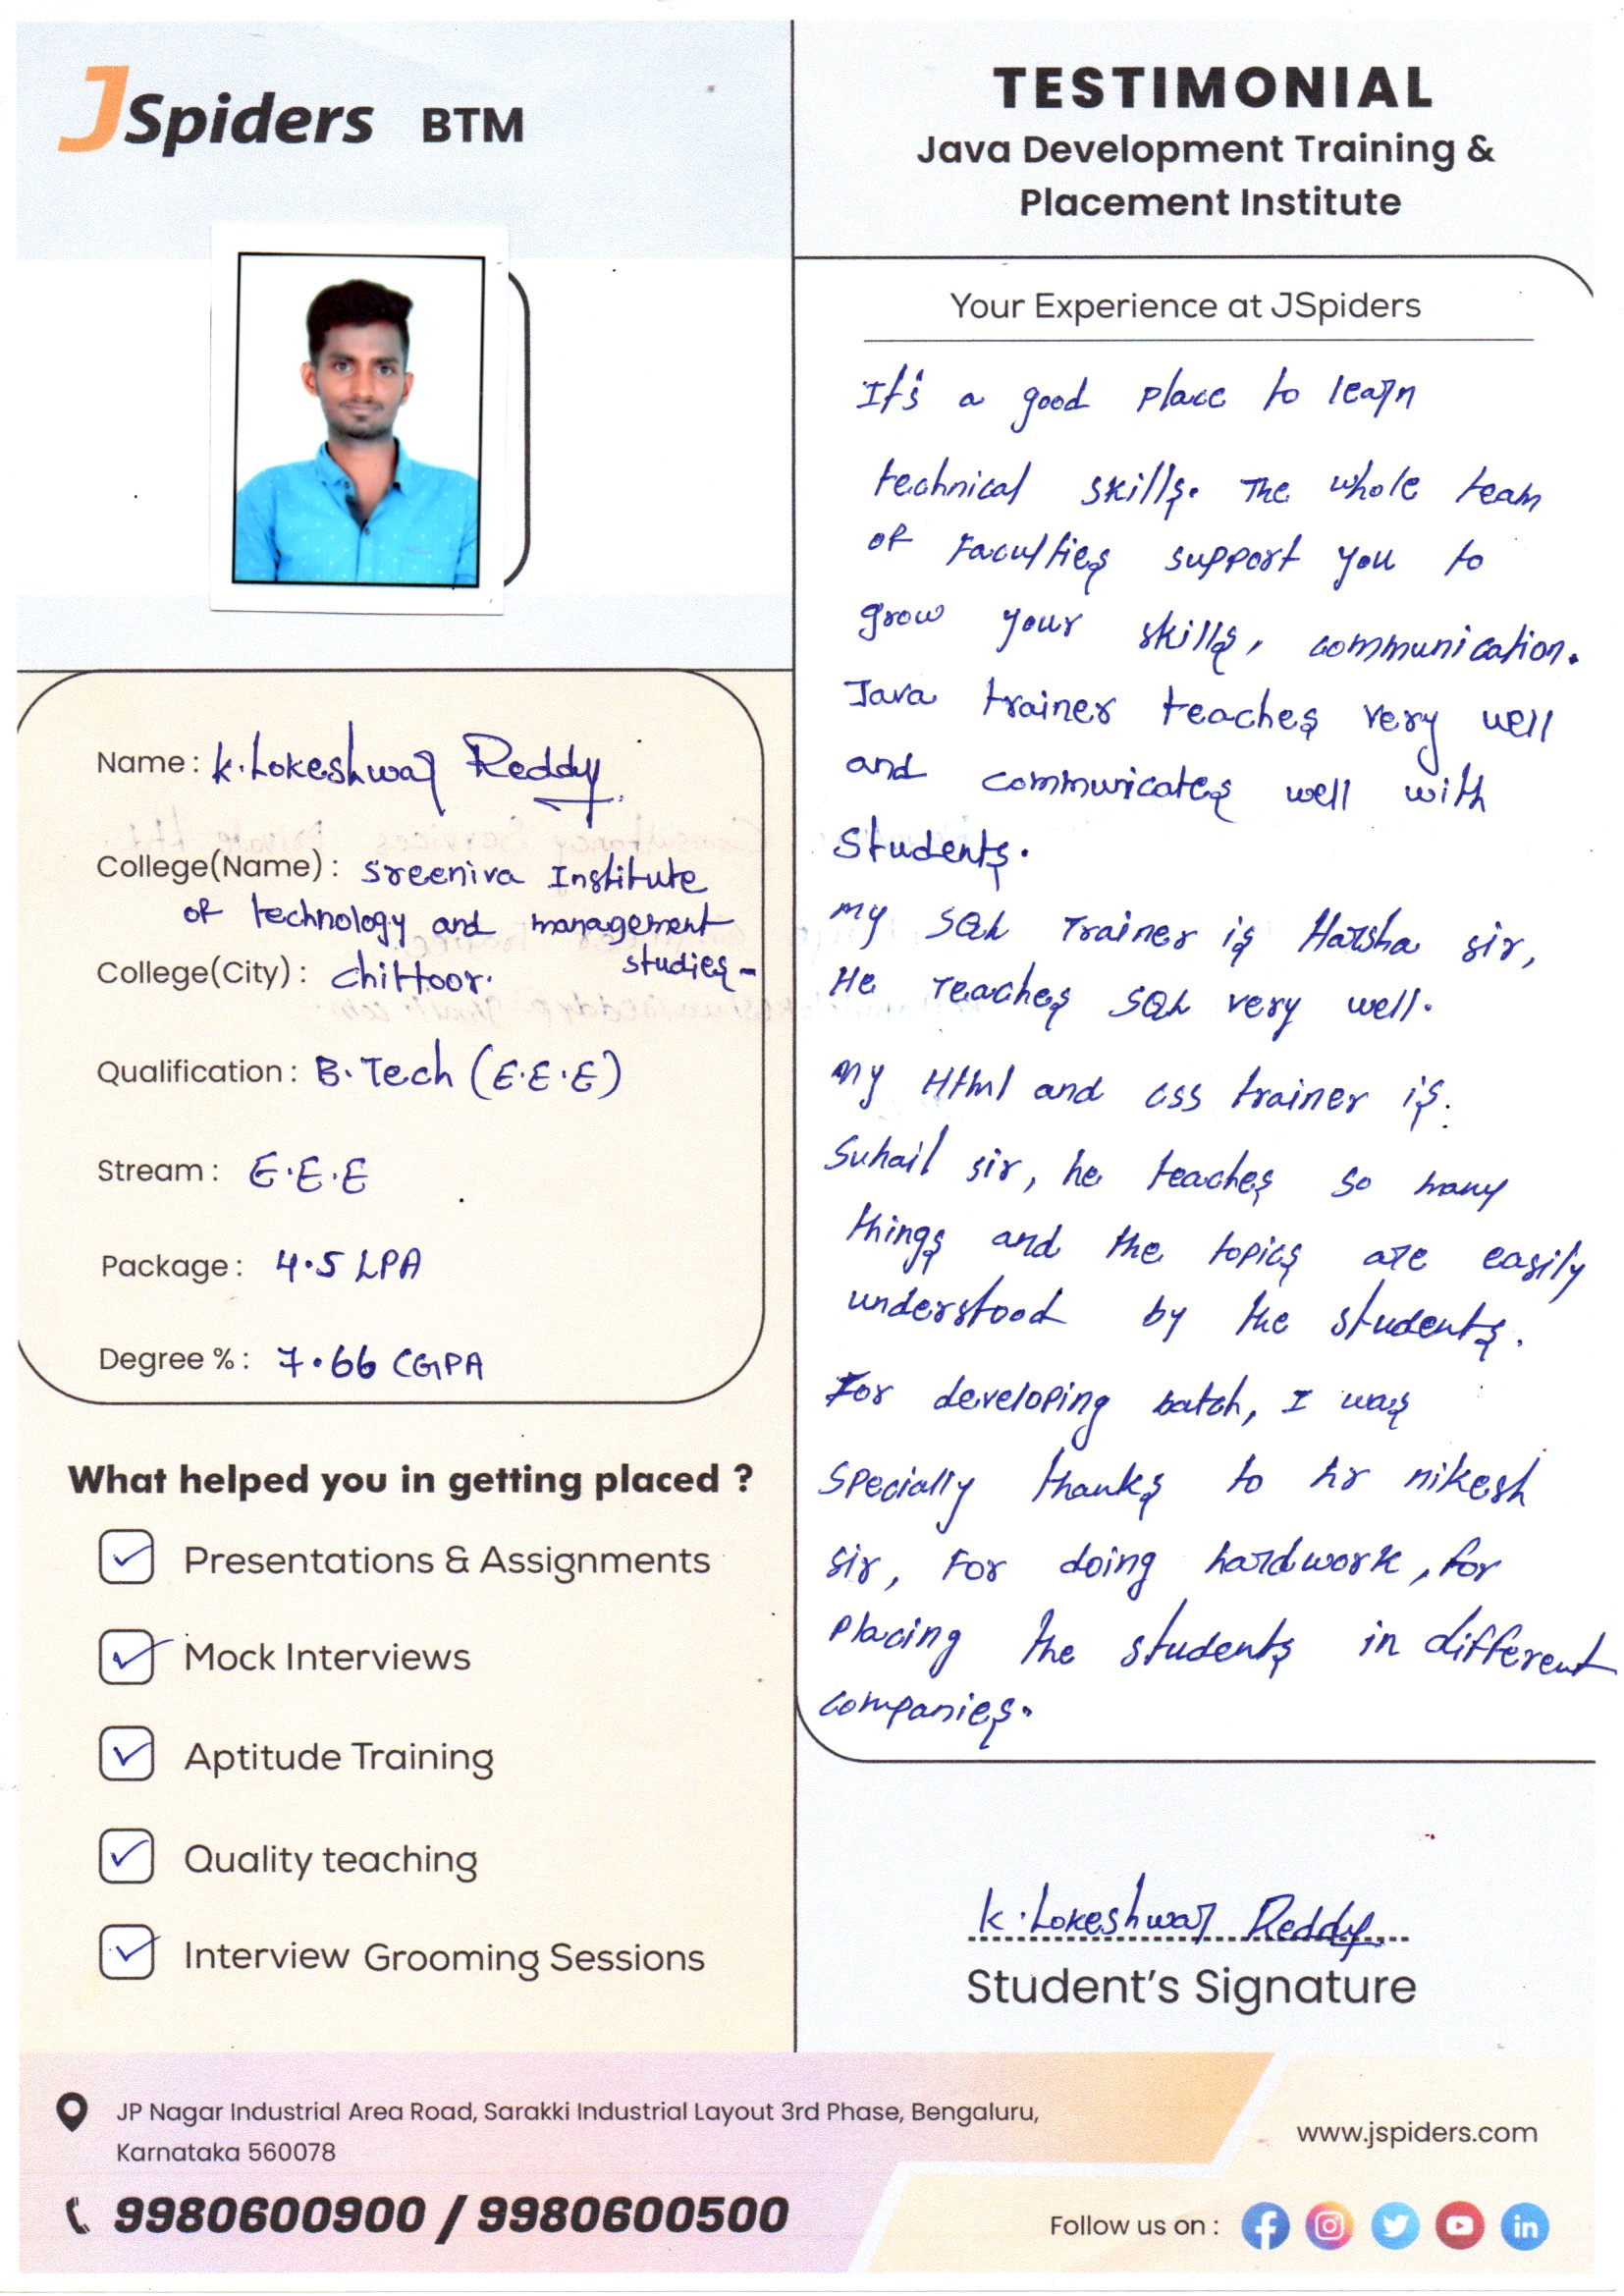 JSpiders BTM
TESTIMONIAL
Java Development Training &
Placement Institute
Name : K. Lokeshwar Reddy
College(Name) : Sreeniva Institute
of technology and management
studies-
College(City) : Chittoor.
Qualification : B.Tech (E.E.E)
Stream : E.E.E
Package : 4.5 LPA
Degree % : 7.66 CGPA
What helped you in getting placed ?
Presentations & Assignments
Mock Interviews
Aptitude Training
Quality teaching
Interview Grooming Sessions
Your Experience at JSpiders
It's a good place to learn
technical skills. The whole team
of Faculties support you to
grow your skills, communication.
Java trainer teaches very well
and communicates well with
Students.
my SQL Trainer is Harsha sir,
He Teaches SQL very well.
my Html and css trainer is.
Suhail sir, he teaches so many
things and the topics are easily
understood by the students.
For developing batch, I was
Specially thanks to hr nikesh
sir, For doing hardwork, for
placing the students in different
companies.
K. Lokeshwar Reddy
Student's Signature
JP Nagar Industrial Area Road, Sarakki Industrial Layout 3rd Phase, Bengaluru,
Karnataka 560078
9980600900 / 9980600500
www.jspiders.com
Follow us on :